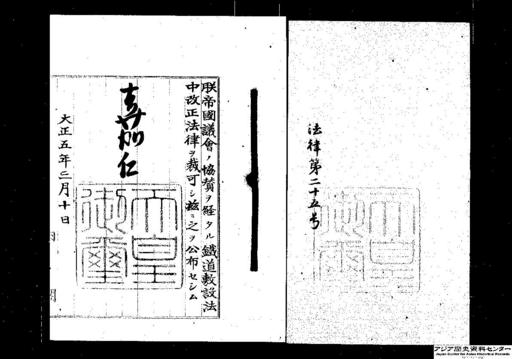 法律第二十五号
朕帝國議會ノ協賛ヲ経タル鐵道敷設法
中改正法律ヲ裁可シ茲ニ之ヲ公布セシム
嘉仁
天皇御璽
大正五年三月十日
アジア歴史資料センター
Japan Center for Asian Historical Records